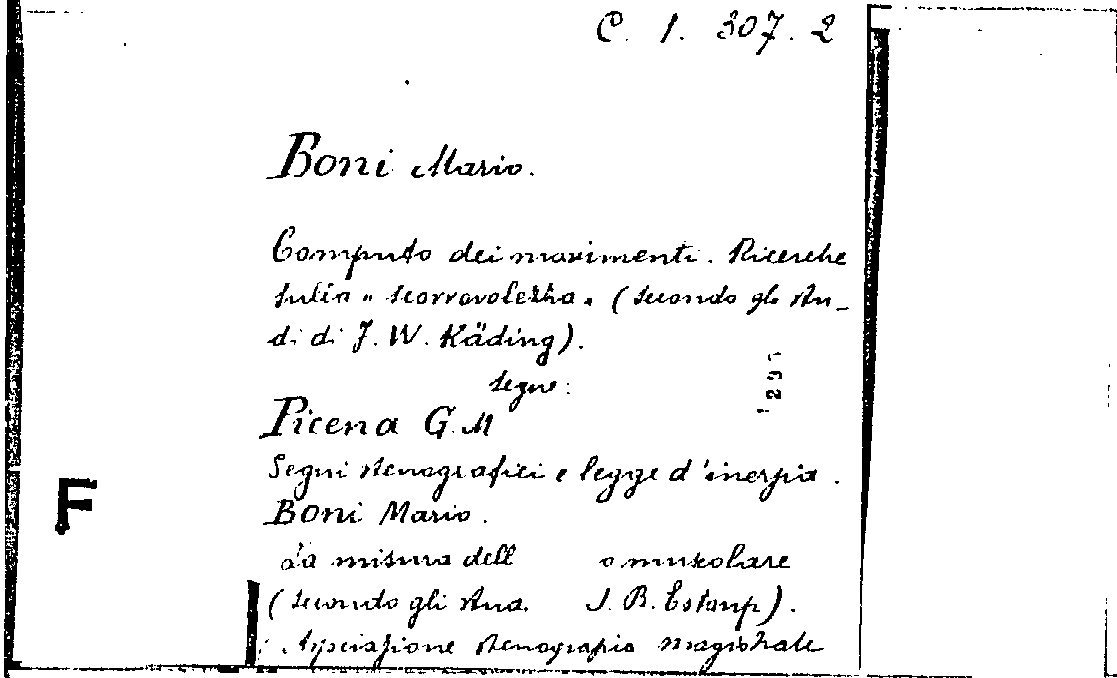 C. 1. 307. 2
Boni Mario.
Computo dei movimenti. Ricerche
sulla "scorrevolezza" (secondo gli stu-
di di J. W. Käding).
segue:
Picena G. M
Segni stenografici e legge d'inerzia.
Boni Mario.
La misura dell o muscolare
(secondo gli stu. J. B. Estoup).
Associazione stenografia magistrale
F